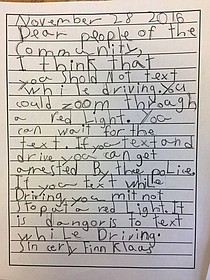 November 28 2016
Dear people of the
Community,
I think that
you shold Not text
while driving. You
could zoom through
a red Light. You
can wait for the
text. If you text and
drive you can get
arrested By the police.
If you text while
Driving you mit not
stop at a red Light. It
is dangoris to text
while Driving.
SIncerly Finn Klaas